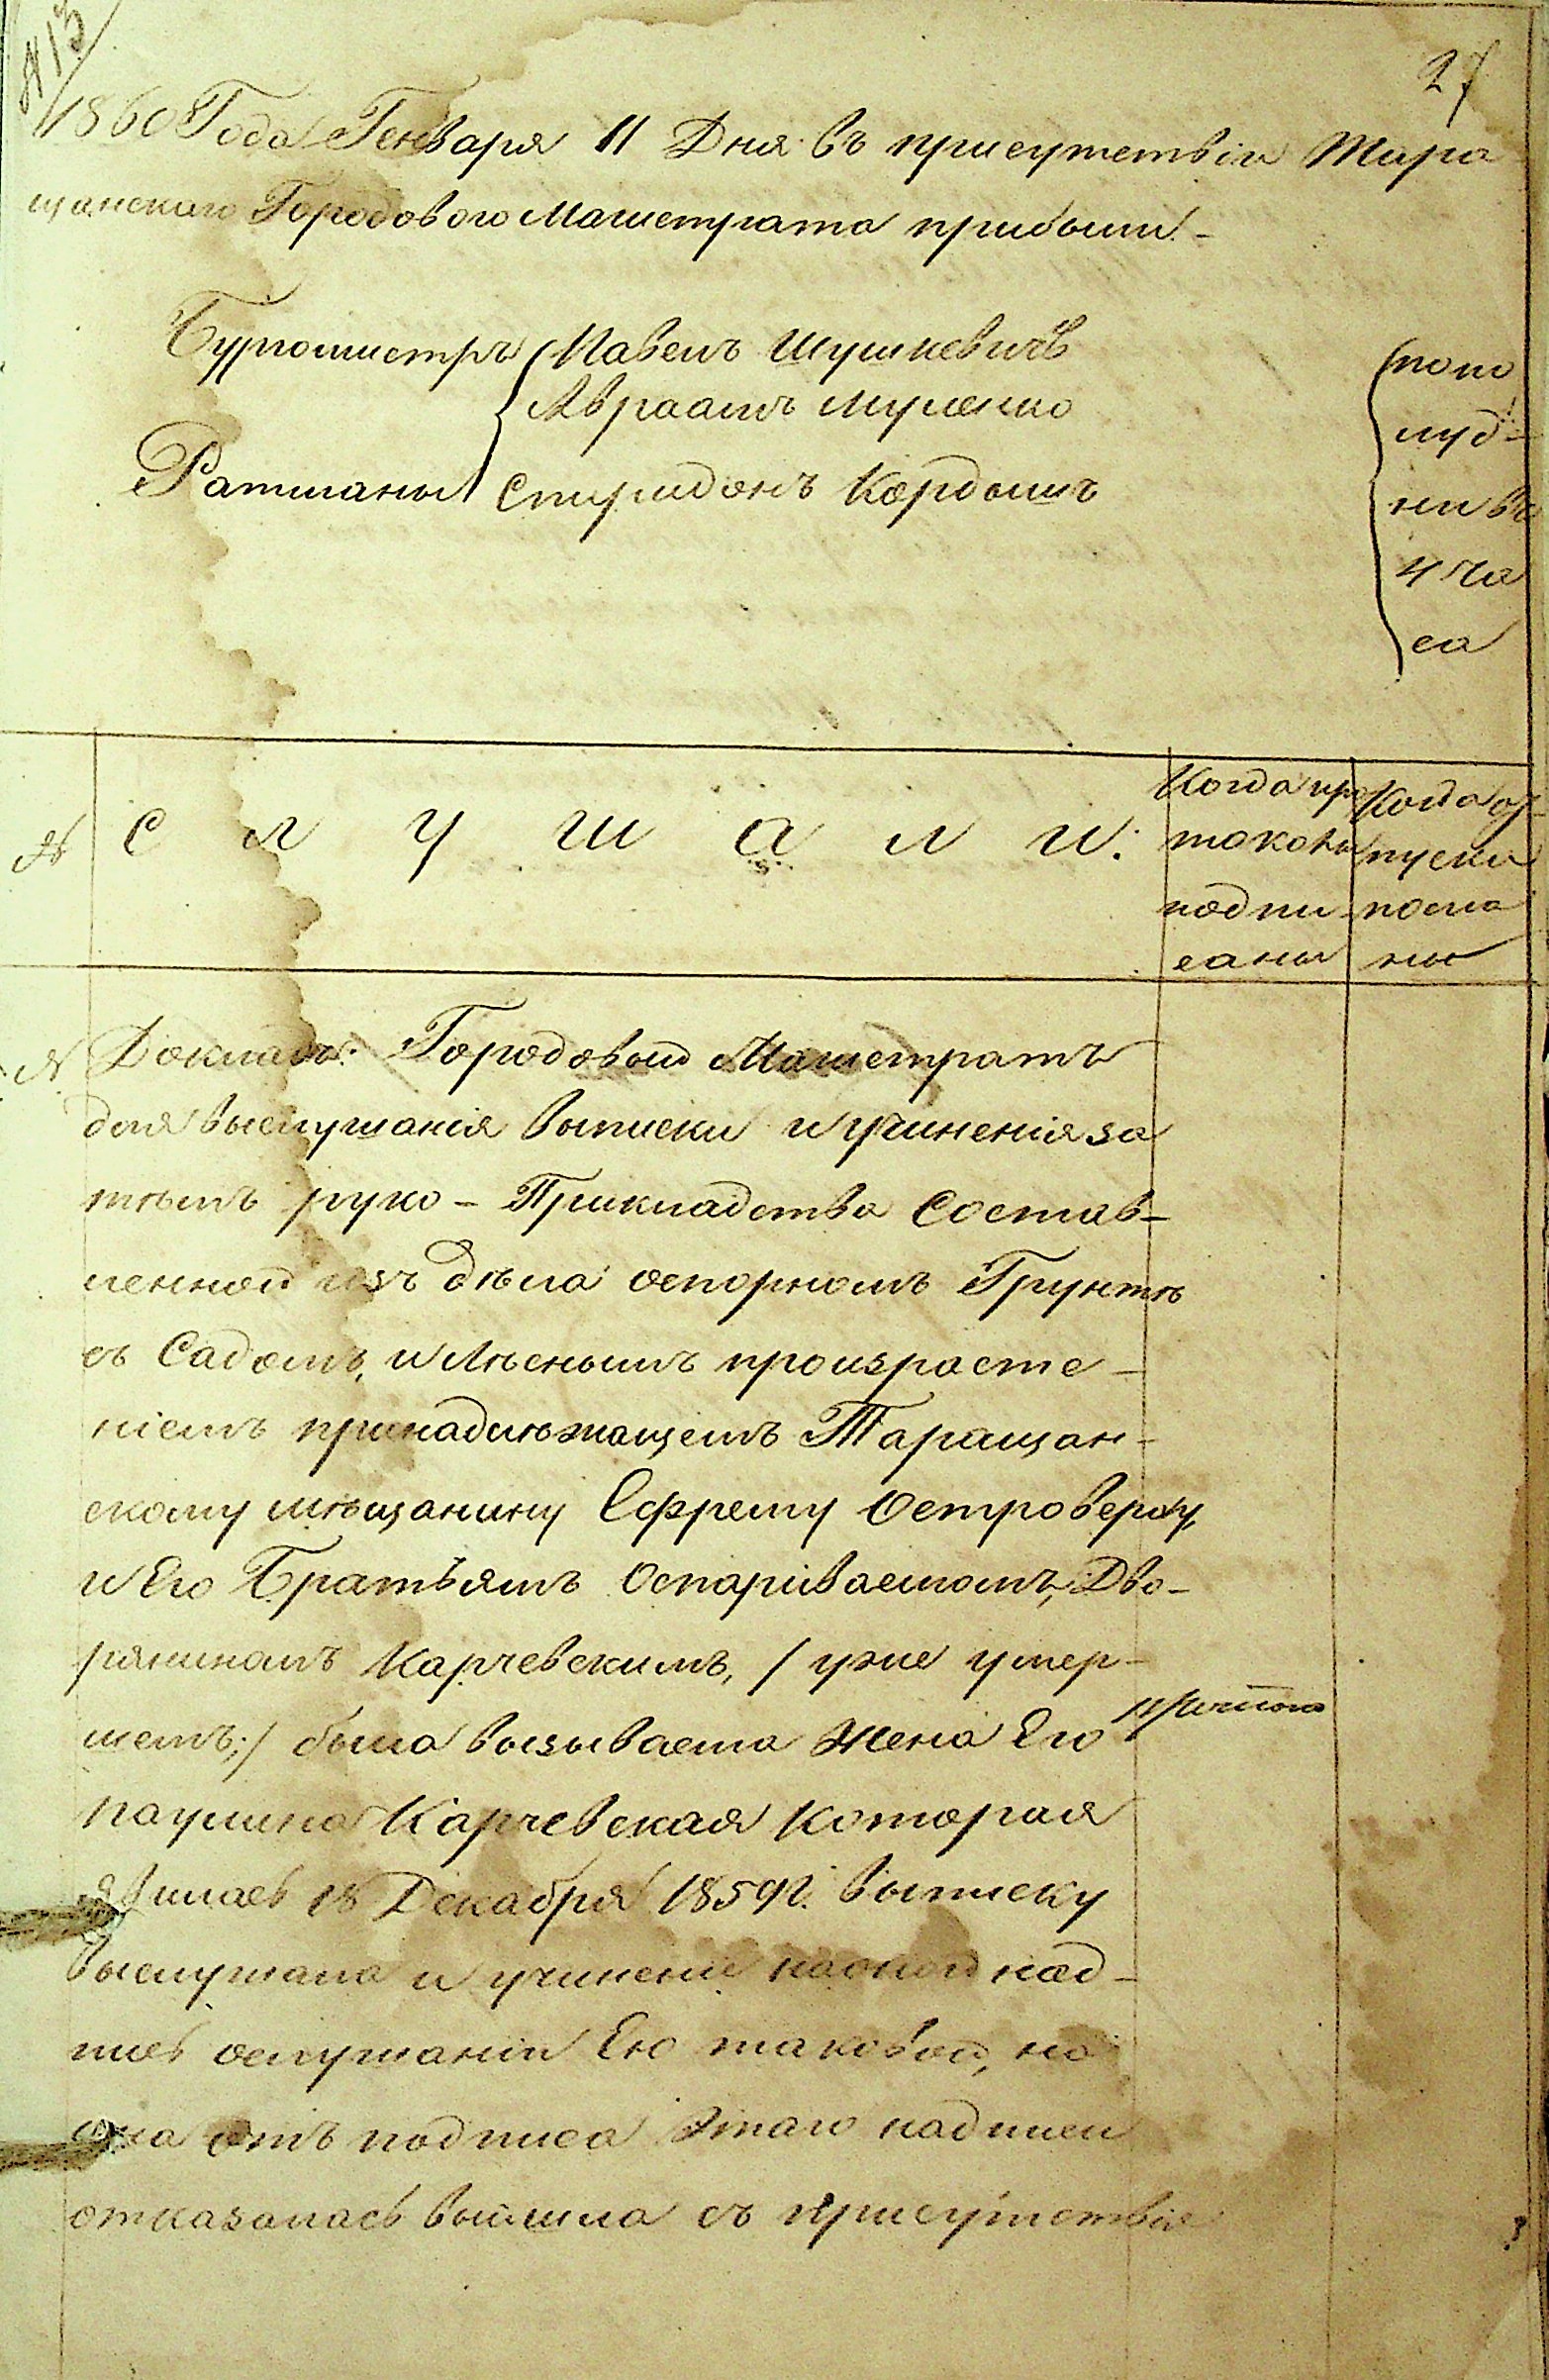 №13
27
1860 Года Генваря 11 Дня въ присутствіи Тара
щанскаго Городового Магистрата прибыли. –
Бургомистръ Павелъ Шушкевичъ
Авраамъ Муленко
Ратманы Спиридонъ Кордышъ
попо
луд-
ни въ
4 ча
са
№ С л у ш а л и:
Когда про
токолы
подпи-
саны
Когда от
пуски
посла
ны
Докладъ: Городовый Магистратъ
для выслушанія выписки и учиненія за
тѣмъ руко – Прикладства Состав–
ленной изъ дѣла оспорномъ Грунтѣ
съ Садомъ, и Лѣснымъ произросте –
ніемъ принадлѣжащемъ Таращан-
скому мѣщанину Ефрему Островерху,
и Его Братьямъ Оспариваемомъ, Дво-
ряниномъ Карчевскимъ, / уже умер-
шемъ; / была вызываема Жена Его
Паулина Карчевская которая
явилась 18 Декабря 1859 г. выписку
выслушала и учинено наоной над-
пись ослушаніи Ею таковой, но
она отъ подписа Этаго надписи
отказалась вышла съ присутствія